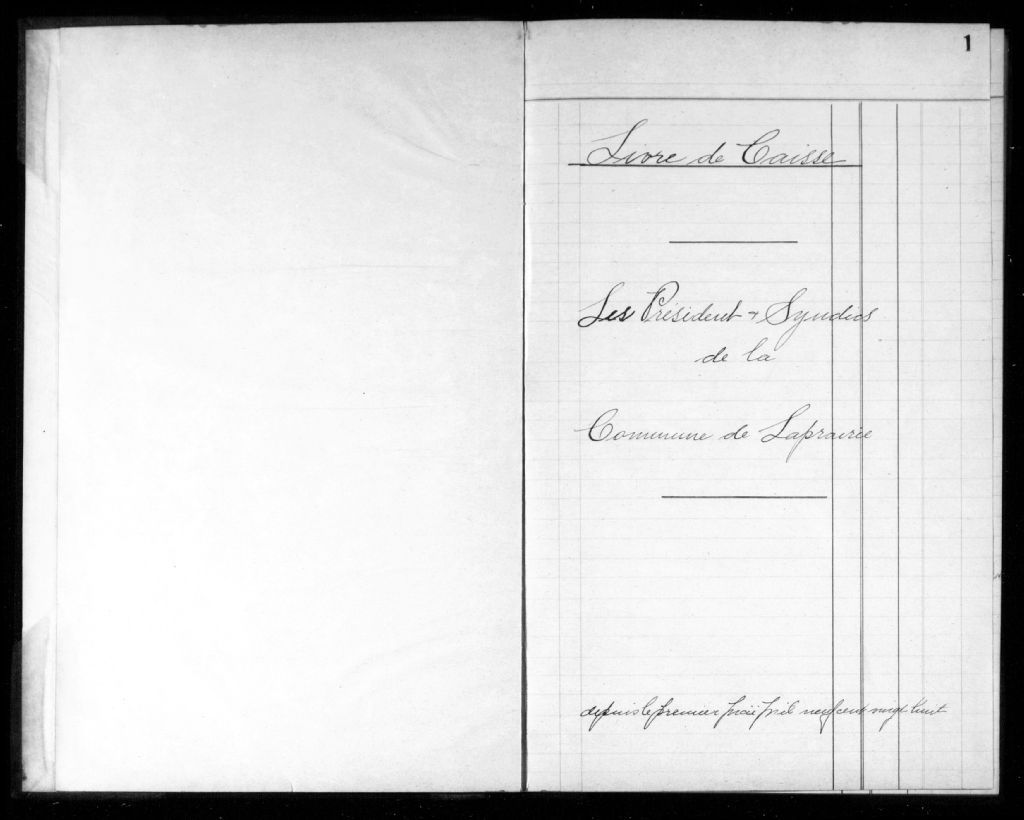 1
Livre de Caisse
Les Président & Syndics
de la
Commune de Laprairie
depuis le premier mai mil neuf cent vingt huit